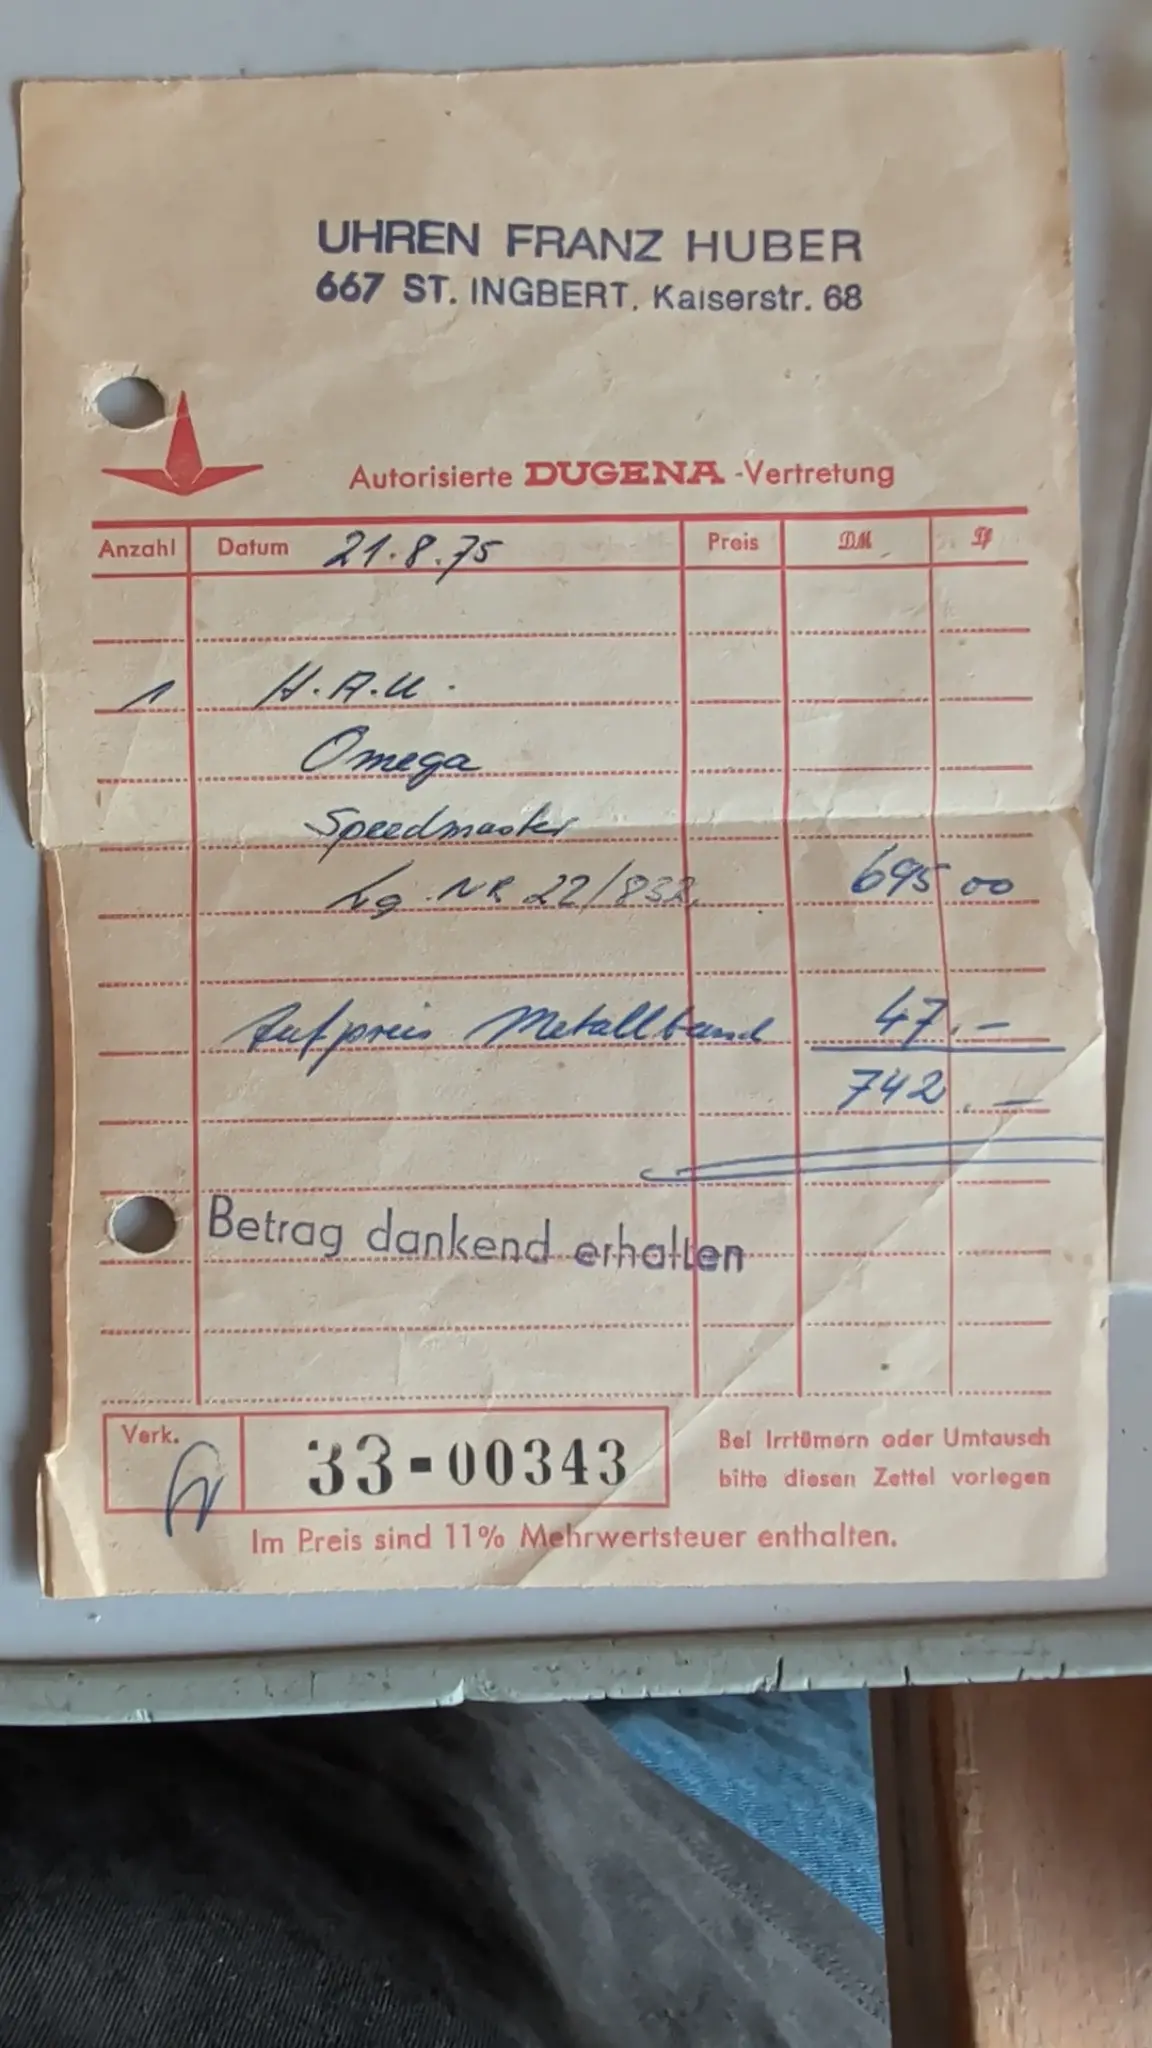 UHREN FRANZ HUBER
667 ST. INGBERT, Kaiserstr. 68
Autorisierte DUGENA -Vertretung
Anzahl Datum 21.8.75 Preis DM Pf
1 H.A.U.
Omega
Speedmaster
Lg. NR 22/832 695 00
Aufpreis Metallband 47.-
742.-
Betrag dankend erhalten
Verk. 33-00343
Bei Irrtümern oder Umtausch
bitte diesen Zettel vorlegen
Im Preis sind 11% Mehrwertsteuer enthalten.